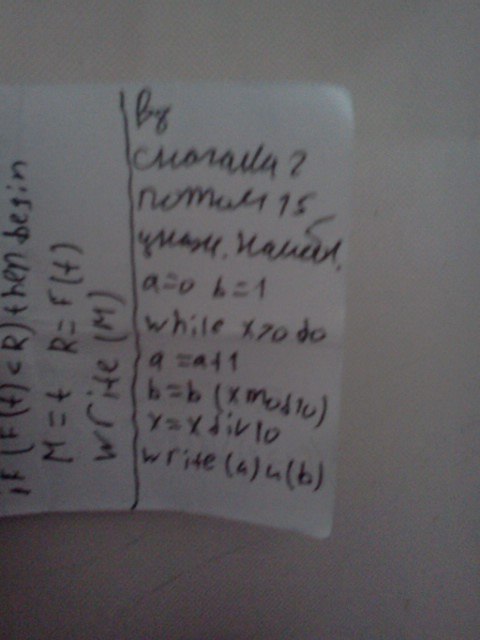 if (F(t)<R) then begin
M=t R=F(t)
write (M)
by
сначала 2
потом 15
укаж. наибол.
a=0 b=1
while x>0 do
a=a+1
b=b (x mod 10)
x=x div 10
write (a) и (b)